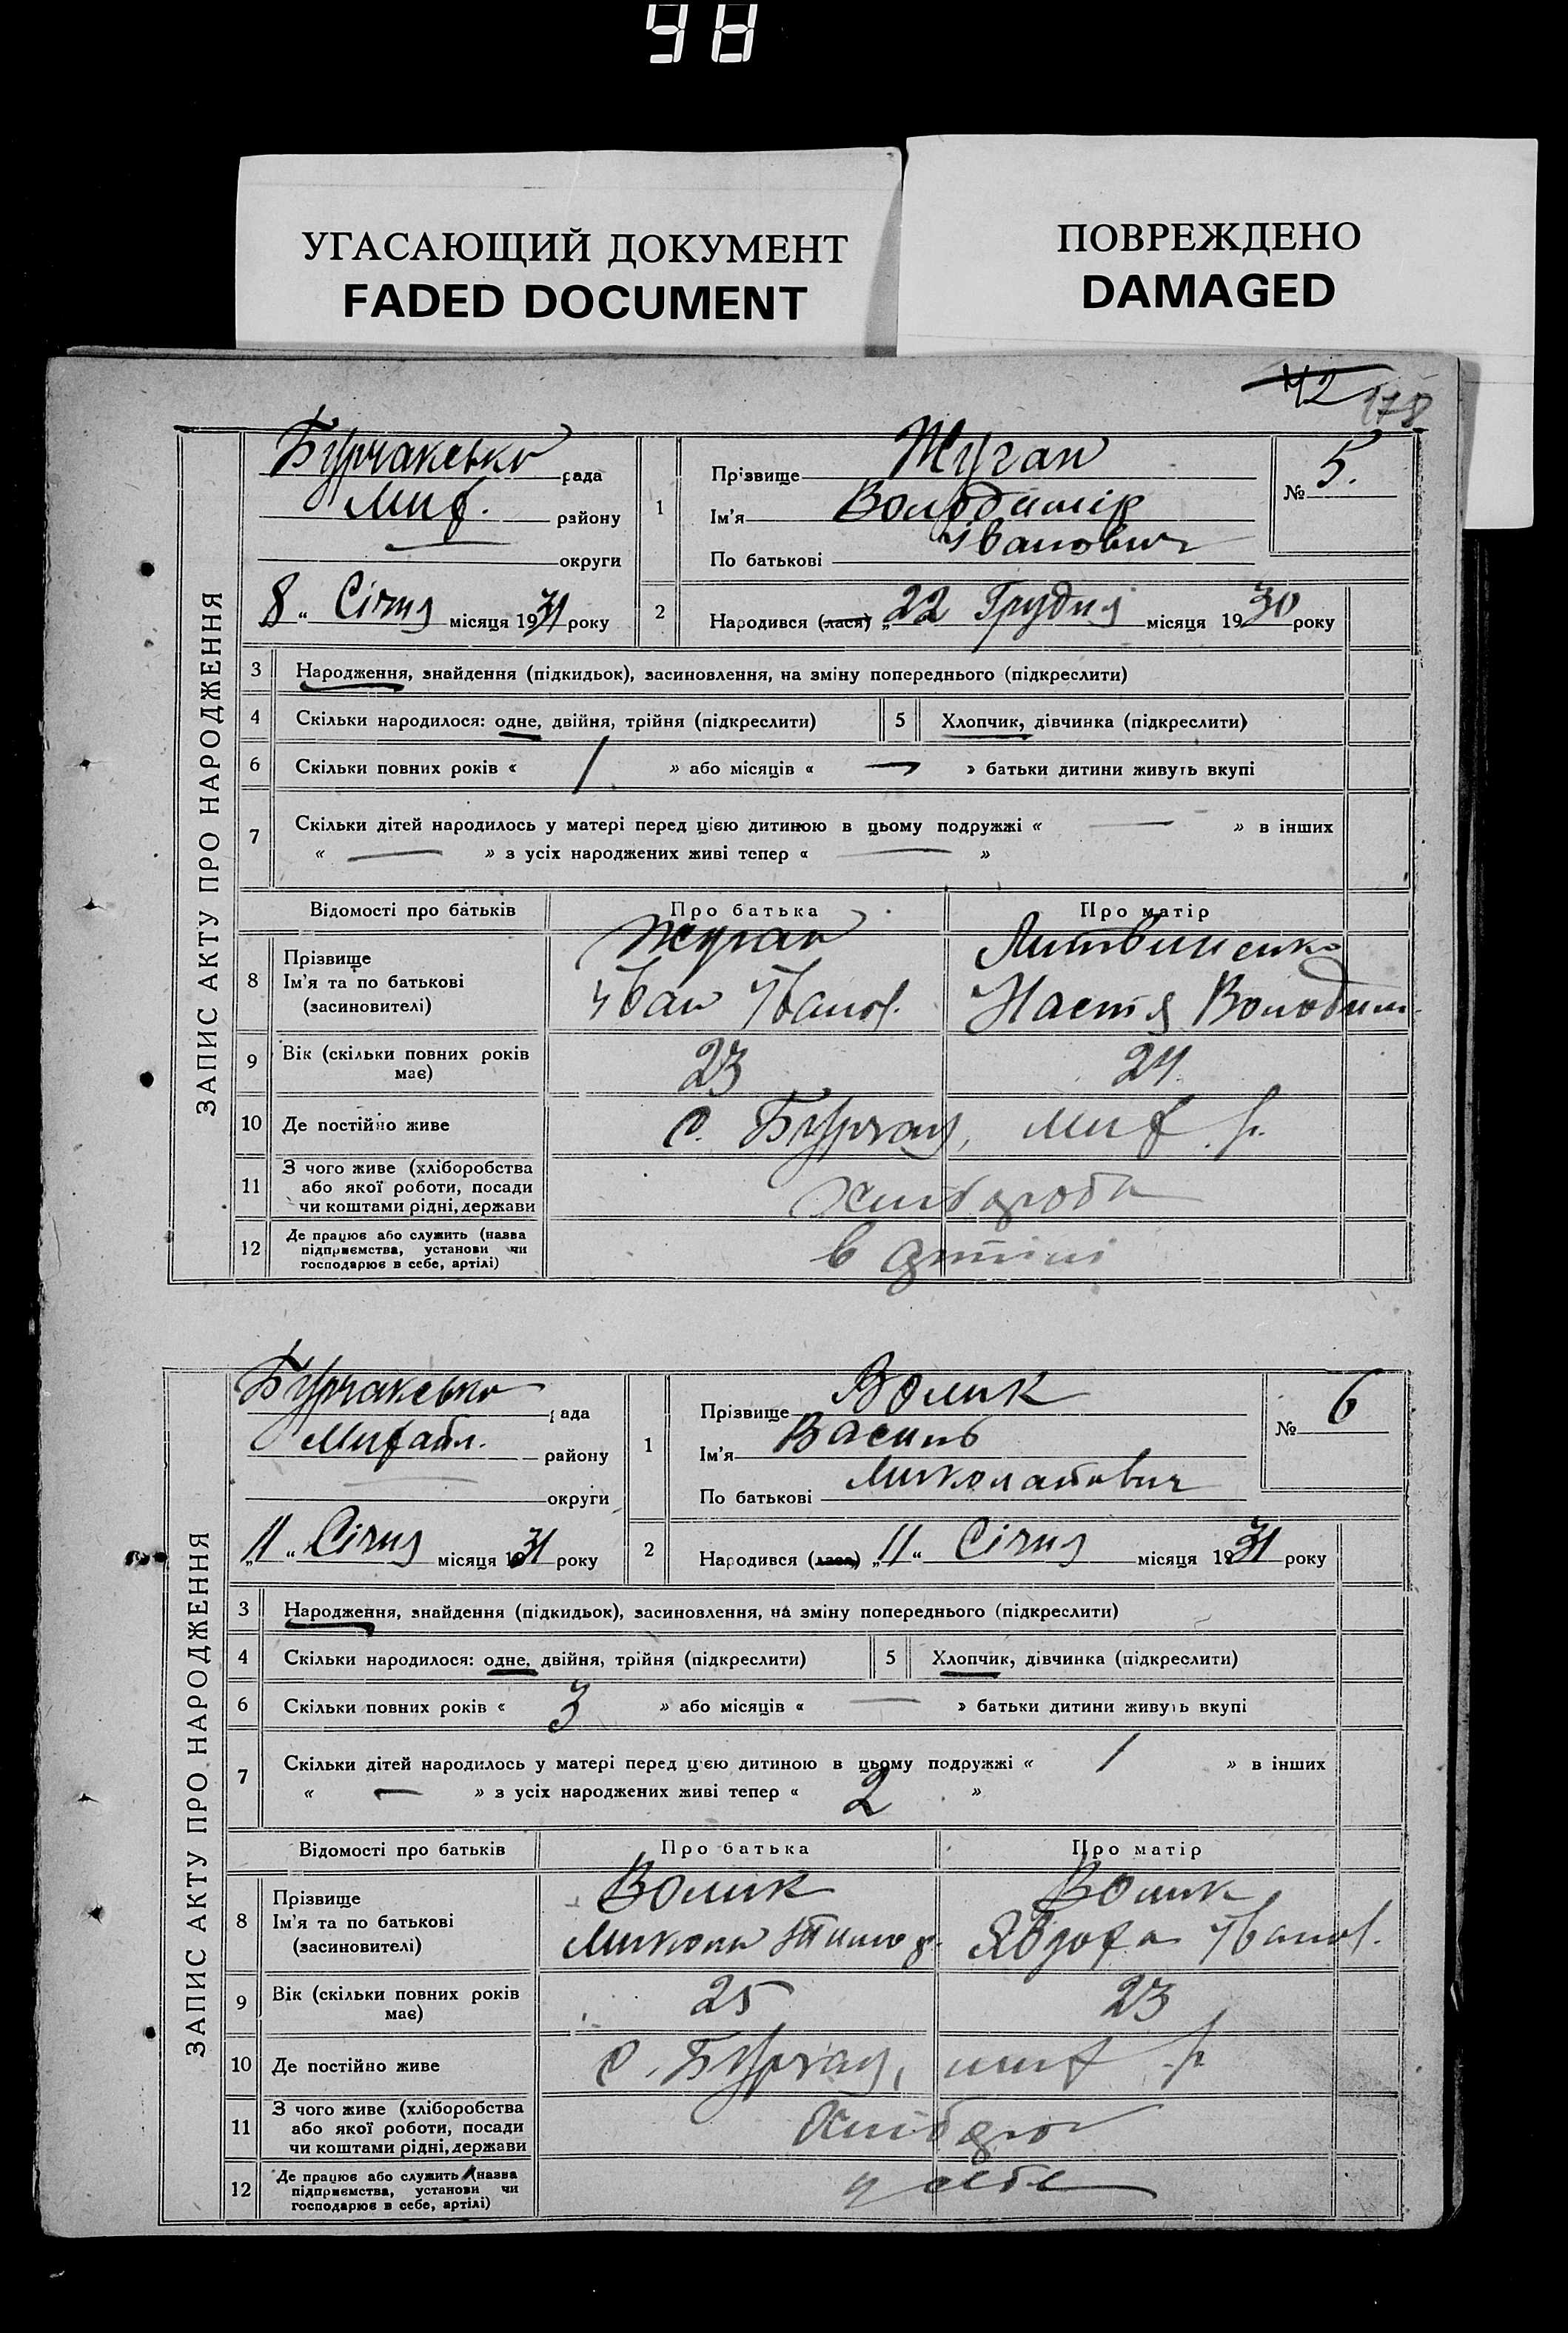 98
УГАСАЮЩИЙ ДОКУМЕНТ
FADED DOCUMENT
ПОВРЕЖДЕНО
DAMAGED
42 178
ЗАПИС АКТУ ПРО НАРОДЖЕННЯ
Бурчаксько рада
Мих. району
округи
8 " Січня місяця 1931 року
1 Прізвище Жуган
Ім'я Володимір
По батькові Іванович
№ 5.
2 Народився (лася) „ 22 Грудня місяця 1930 року
3 Народження, знайдення (підкидьок), засиновлення, на зміну попереднього (підкреслити)
4 Скільки народилося: одне, двійня, трійня (підкреслити) 5 Хлопчик, дівчинка (підкреслити)
6 Скільки повних років « 1 » або місяців « — » батьки дитини живуть вкупі
7 Скільки дітей народилось у матері перед цією дитиною в цьому подружжі « — » в інших
« — » з усіх народжених живі тепер « — »
Відомості про батьків Про батька Про матір
8 Прізвище Жуган Литвиненко
Ім'я та по батькові Іван Іванов. Настя Володим.
(засиновителі)
9 Вік (скільки повних років має) 23 24.
10 Де постійно живе с. Бурчак, Мих. р.
11 З чого живе (хліборобства
або якої роботи, посади
чи коштами рідні, держави
12 Де працює або служить (назва
підприємства, установи чи
господарює в себе, артілі)
в артілі
ЗАПИС АКТУ ПРО НАРОДЖЕННЯ
Бурчаксько рада
Михайл. району
округи
„ 11 " Січня місяця 1931 року
1 Прізвище Волик
Ім'я Василь
По батькові Миколайович
№ 6
2 Народився (лася) „ 11 " Січня місяця 1931 року
3 Народження, знайдення (підкидьок), засиновлення, на зміну попереднього (підкреслити)
4 Скільки народилося: одне, двійня, трійня (підкреслити) 5 Хлопчик, дівчинка (підкреслити)
6 Скільки повних років « 3 » або місяців « — » батьки дитини живуть вкупі
7 Скільки дітей народилось у матері перед цією дитиною в цьому подружжі « 1 » в інших
« — » з усіх народжених живі тепер « 2 »
Відомості про батьків Про батька Про матір
8 Прізвище Волик Волик
Ім'я та по батькові Микола Явдоха Іванов.
(засиновителі)
9 Вік (скільки повних років має) 25 23
10 Де постійно живе с. Бурчак, мих р
11 З чого живе (хліборобства
або якої роботи, посади
чи коштами рідні, держави
12 Де працює або служить (назва
підприємства, установи чи
господарює в себе, артілі)
у себе